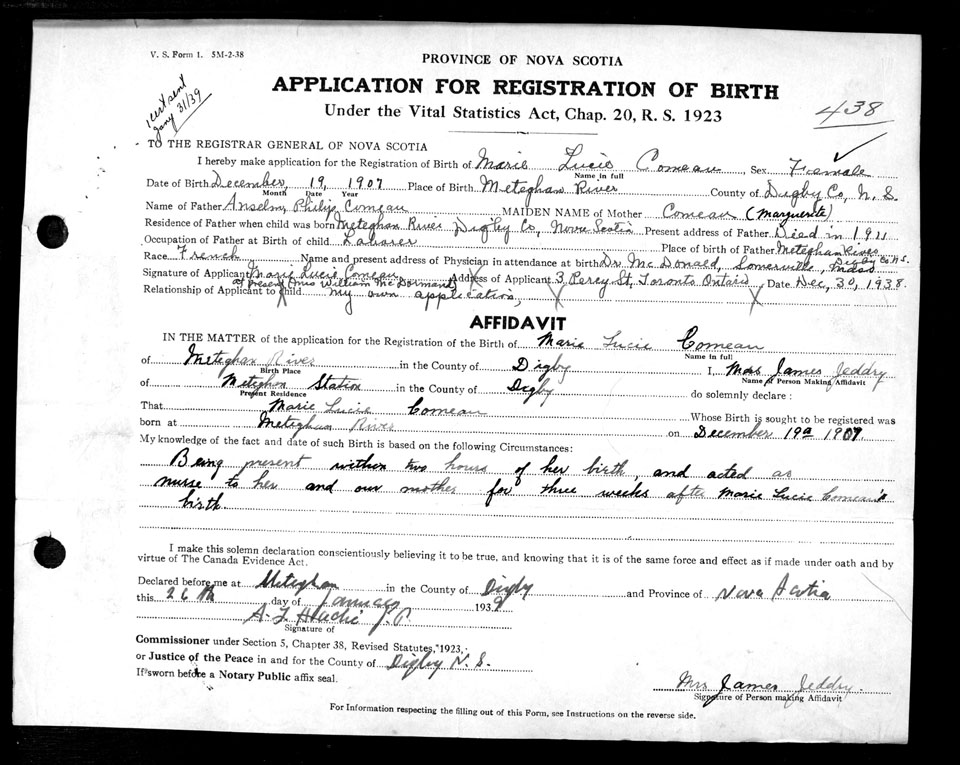 V. S. Form 1. 5M-2-38
PROVINCE OF NOVA SCOTIA
APPLICATION FOR REGISTRATION OF BIRTH
Under the Vital Statistics Act, Chap. 20, R. S. 1923
1 cert sent
Jany 31/39
438
TO THE REGISTRAR GENERAL OF NOVA SCOTIA
I hereby make application for the Registration of Birth of Marie Lucie Comeau Sex Female
Name in full
Date of Birth December, 19, 1907 Place of Birth Meteghan River County of Digby Co, N. S.
Month Date Year
Name of Father Anselm, Philip Comeau MAIDEN NAME of Mother Comeau (Marguerite)
Residence of Father when child was born Meteghan River Digby Co, Nova Scotia Present address of Father Died in 1911
Occupation of Father at Birth of child Labarer Place of birth of Father Meteghan River
Digby Co. N. S.
Race French Name and present address of Physician in attendance at birth Dr McDonald, Somerville, Mass
Signature of Applicant Marie Lucie Comeau Address of Applicant 3 Percy St, Toronto Ontario Date Dec, 30, 1938
at Present (Mrs William McDormand)
Relationship of Applicant to child my own application,
AFFIDAVIT
IN THE MATTER of the application for the Registration of the Birth of Marie Lucie Comeau
Name in full
of Meteghan River in the County of Digby I, Mrs James Jeddry
Birth Place Name of Person Making Affidavit
of Meteghan Station in the County of Digby do solemnly declare :
Present Residence
That Marie Lucie Comeau Whose Birth is sought to be registered was
born at Meteghan River on December 19th 1907
My knowledge of the fact and date of such Birth is based on the following Circumstances:
Being present within two hours of her birth, and acted as
nurse to her and our mother for three weeks after Marie Lucie Comeau's
birth.
I make this solemn declaration conscientiously believing it to be true, and knowing that it is of the same force and effect as if made under oath and by
virtue of The Canada Evidence Act.
Declared before me at Meteghan in the County of Digby and Province of Nova Scotia
this 26th day of January 1939
J. P.
Signature of
Commissioner under Section 5, Chapter 38, Revised Statutes, 1923,
or Justice of the Peace in and for the County of Digby N. S.
If sworn before a Notary Public affix seal.
Mrs James Jeddry.
Signature of Person making Affidavit
For Information respecting the filling out of this Form, see Instructions on the reverse side.